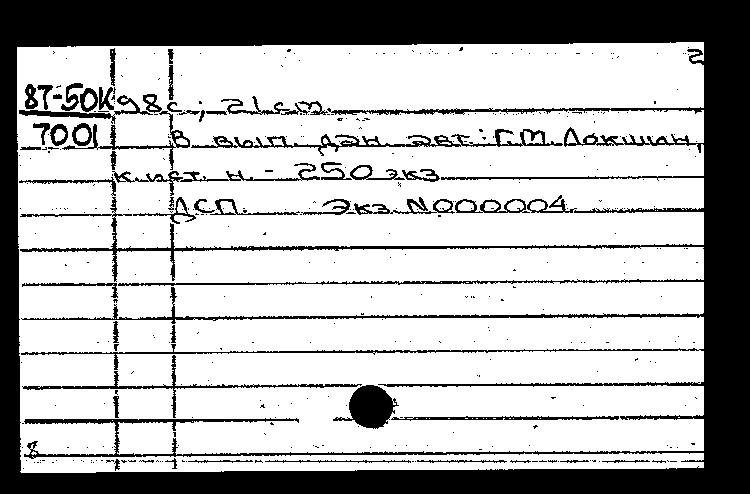 2
87-50К 98с; 21 cm.
7001 В вып. дан. авт.: Г.М. Локшин,
к.ист. н. - 250 экз
ДСП. Экз. N000004
8